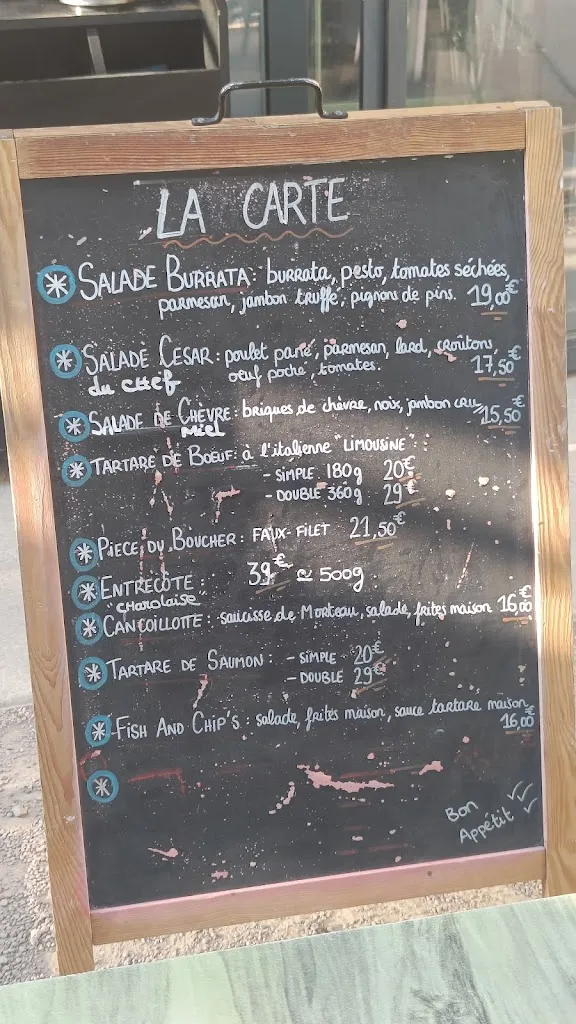 LA CARTE
SALADE BURRATA: burrata, pesto, tomates séchées,
parmesan, jambon truffé, pignons de pins. 19,00€
SALADE CESAR: poulet pané, parmesan, lard, croûtons,
du CHEF oeuf poché, tomates. 17,50€
SALADE DE CHÈVRE: briques de chèvre, noix, jambon cru, 15,50€
MIEL
TARTARE DE BOEUF: à l'italienne "LIMOUSINE":
- SIMPLE 180g 20€
- DOUBLE 360g 29€
PIECE DU BOUCHER: FAUX-FILET 21,50€
ENTRECÔTE: 39€ ≃ 500g
"CHAROLAISE"
CANCOILLOTTE: saucisse de Morteau, salade, frites maison 16,00€
TARTARE DE SAUMON: - SIMPLE 20€
- DOUBLE 29€
FISH AND CHIP'S: salade, frites maison, sauce tartare maison,
16,00€
Bon
Appétit